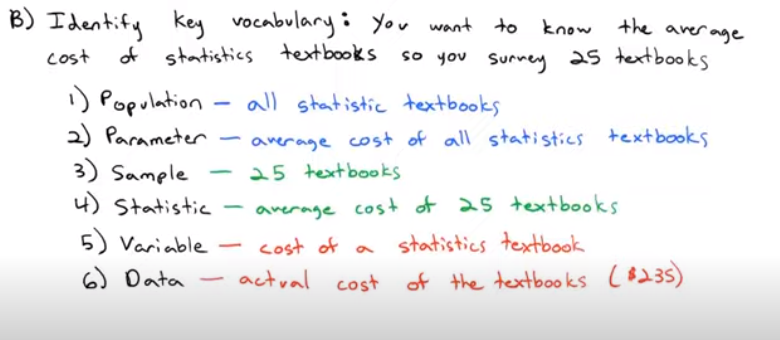 B) Identify key vocabulary: You want to know the average
cost of statistics textbooks so you survey 25 textbooks
1) Population – all statistic textbooks
2) Parameter – average cost of all statistics textbooks
3) Sample – 25 textbooks
4) Statistic – average cost of 25 textbooks
5) Variable – cost of a statistics textbook
6) Data – actual cost of the textbooks ($235)